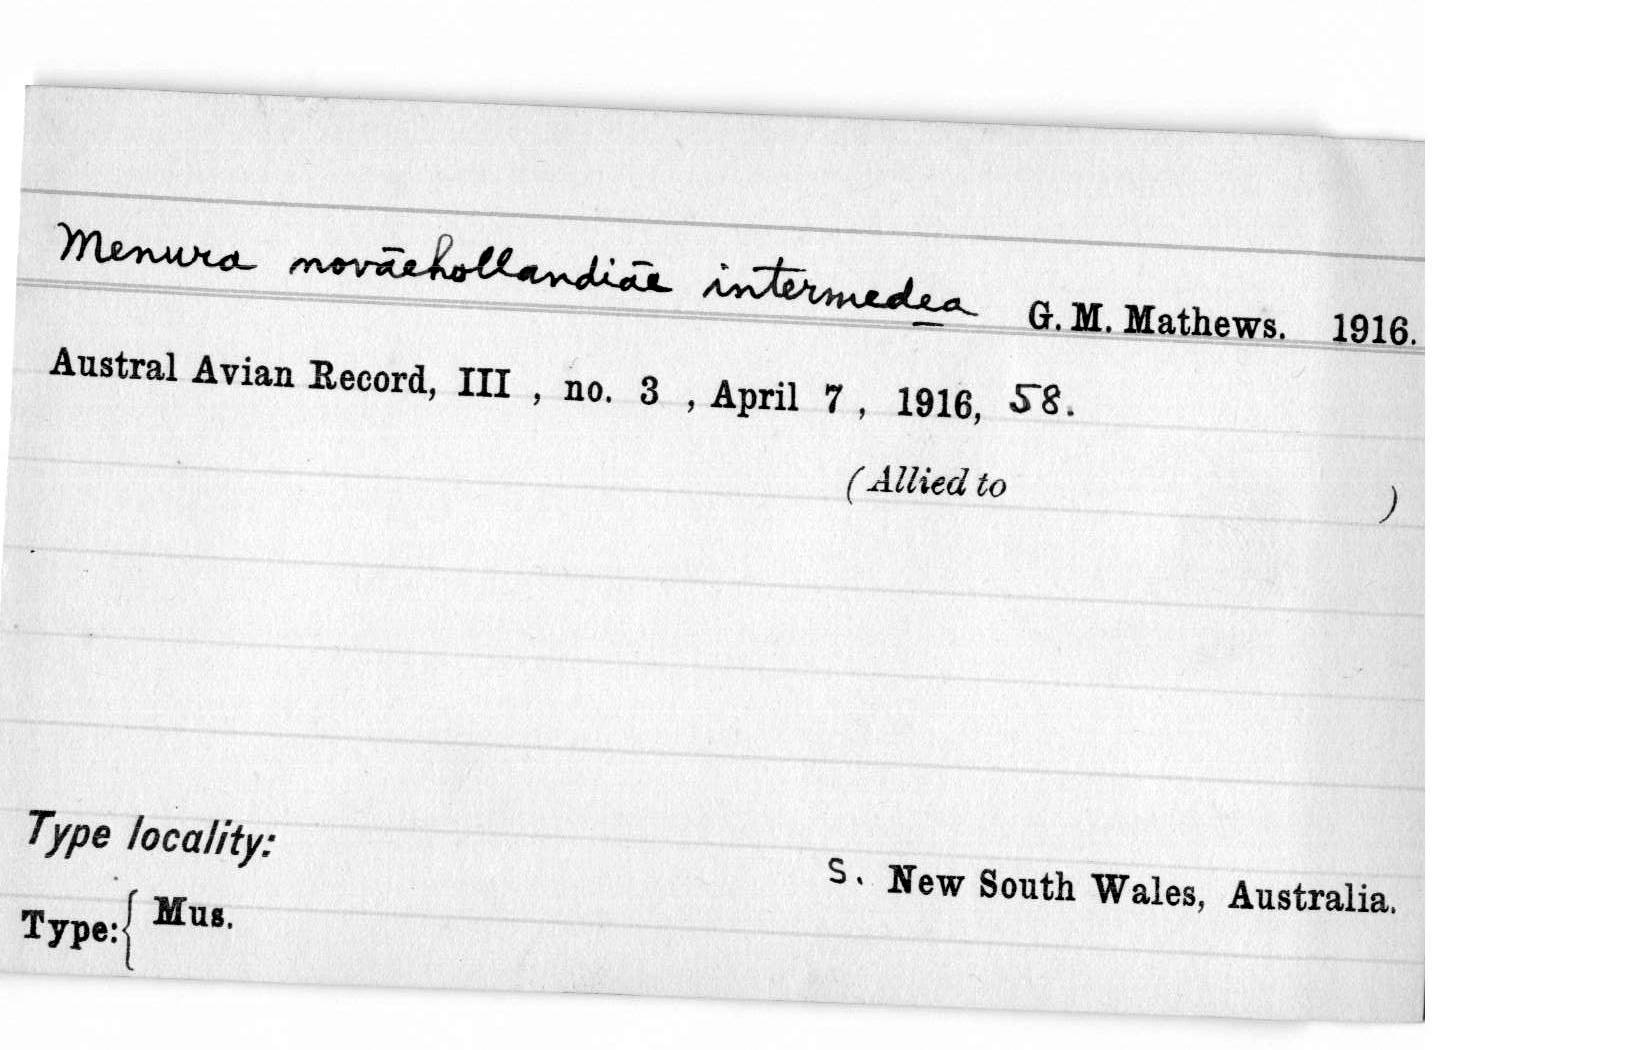 Menura novāehollandiāe intermedea G. M. Mathews. 1916.
Austral Avian Record, III , no. 3 , April 7 , 1916, 58.
(Allied to )
Type locality:
S. New South Wales, Australia.
Type: { Mus.